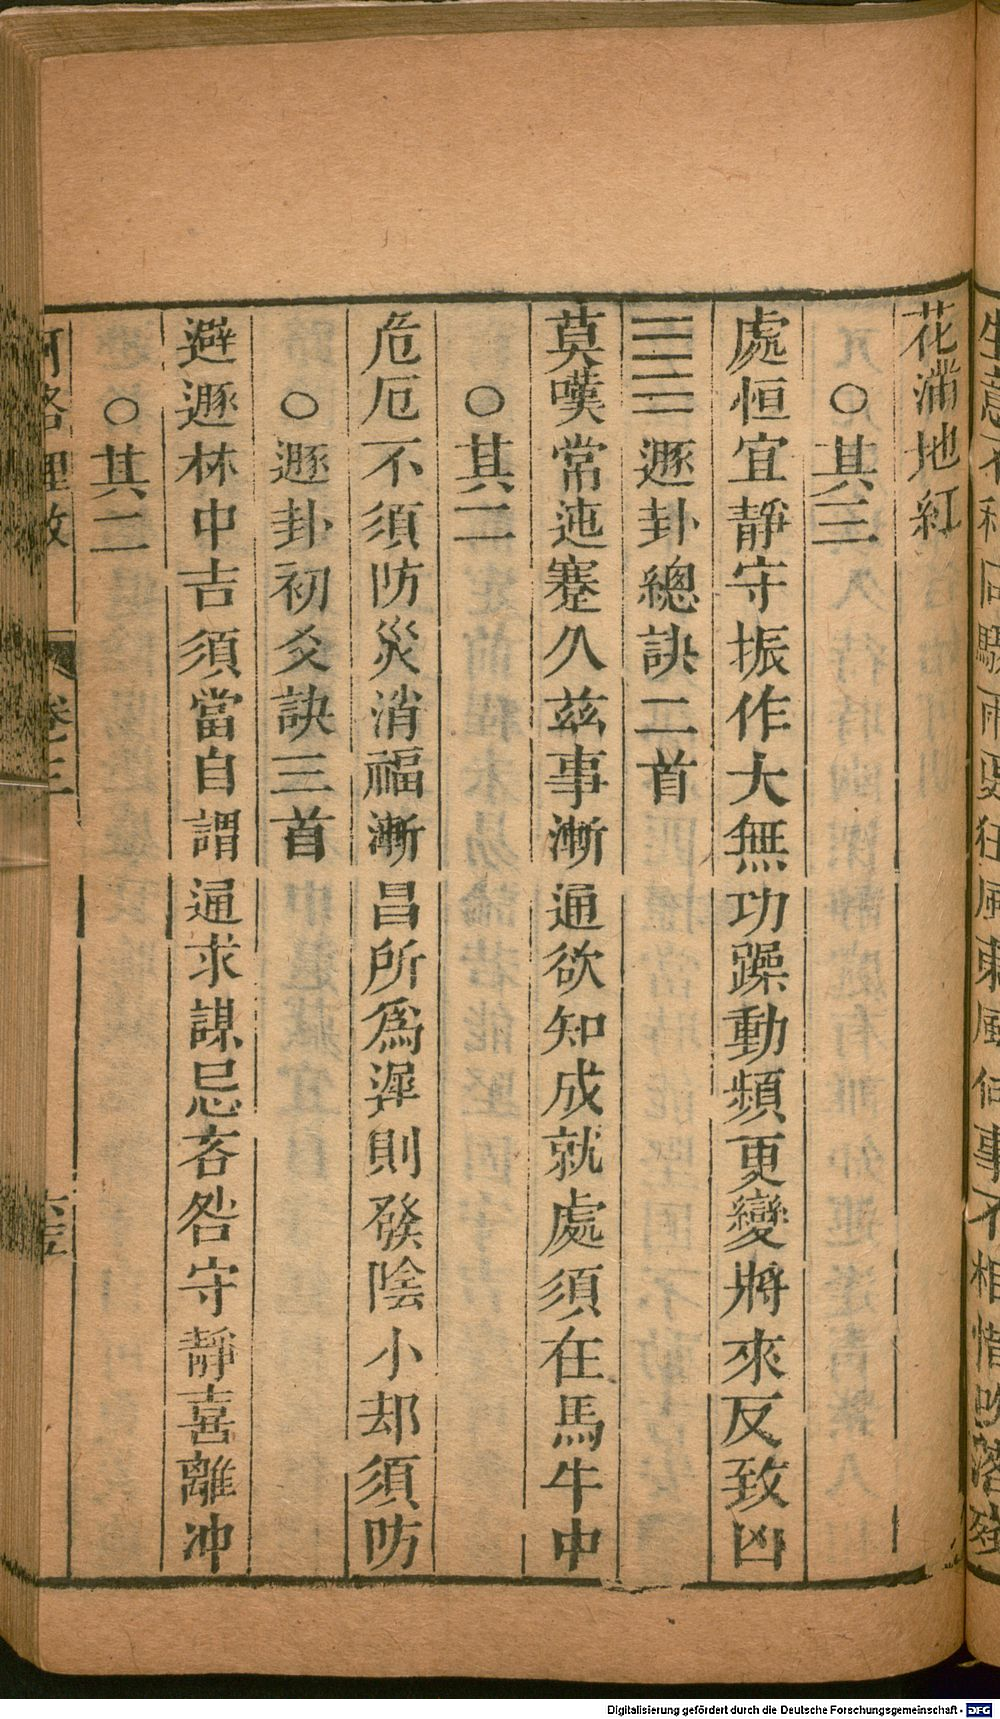 花滿地紅
○其三
處恒宜靜守振作大無功躁動頻更變將來反致凶
䷠遯卦總訣二首
莫嘆常迍蹇久兹事漸通欲知成就處須在馬牛中
○其二
危厄不須防災消福漸昌所爲遲則發陰小却須防
○遯卦初爻訣三首
避遯林中吉須當自謂通求謀忌吝咎守靜喜離冲
○其二
河洛理數 卷三
Digitalisierung gefördert durch die Deutsche Forschungsgemeinschaft - DFG